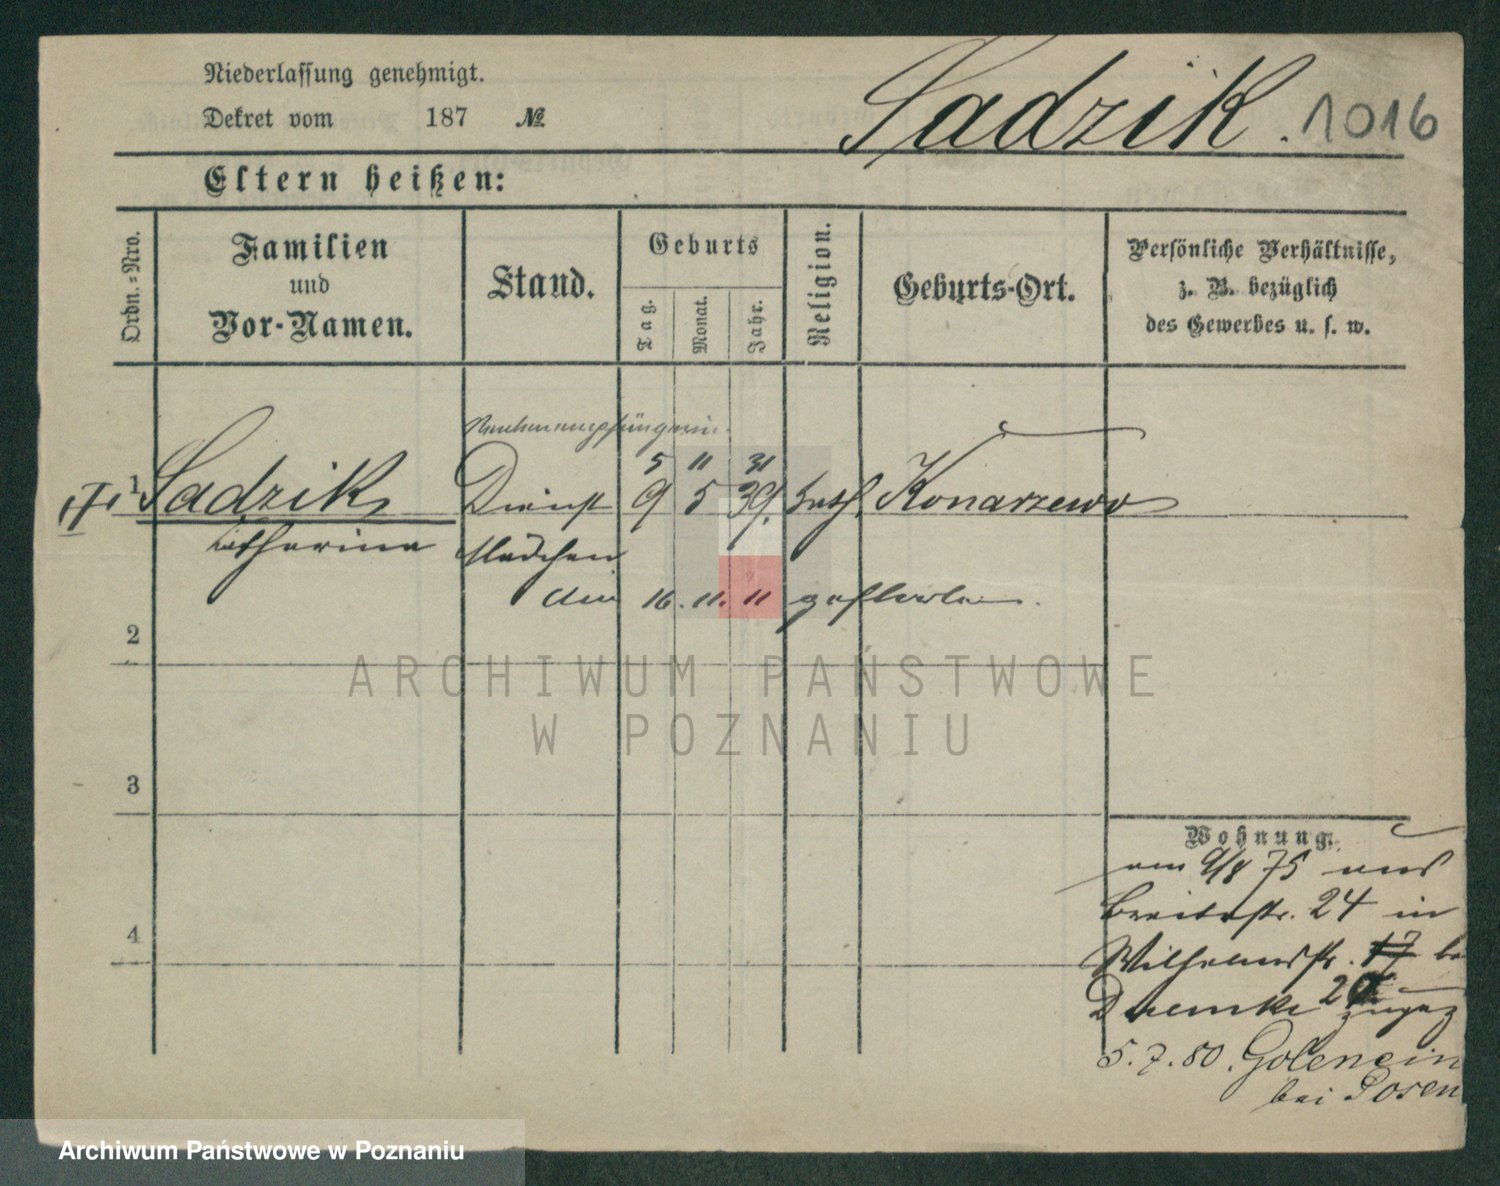 Niederlassung genehmigt.
Dekret vom 187 №
Sadzik. 1016
Eltern heißen:
Ordn.-Nro.
Familien
und
Vor-Namen.
Stand.
Geburts
Tag. Monat. Jahr.
Religion.
Geburts-Ort.
Persönliche Verhältnisse,
z. B. bezüglich
des Gewerbes u. s. w.
5 11 31
1 Sadzik, Dienst 9 5 39. kath. Konarzewo
Katharina Mädchen
den 16. 11. 11 gestorben.
2
ARCHIWUM PAŃSTWOWE
W POZNANIU
3
4
Wohnung.
am 9/8 75 aus
Breitestr. 24 in
Wilhelmstr. 17 be
zugez
5.7.80. Golencin
bei Posen
Archiwum Państwowe w Poznaniu